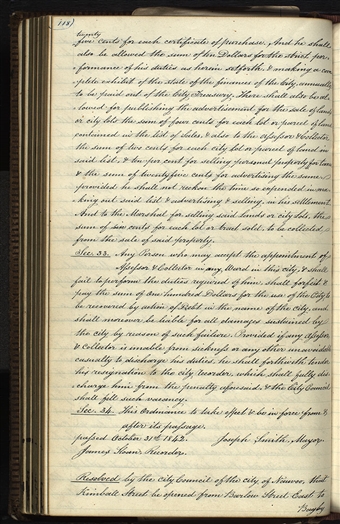 118)
twenty
five cents for each certificate of purchase. And he shall
also be allowed the sum of ten Dollars for the strict per-
formance of his duties as herein setforth, & making a com-
plete exhibit of the state of the finances of the City, annually
to be paid out of the City Treasury. There shall also be al-
lowed for publishing the advertisement for the sale of lands
or city lots the sum of four cents for each lot or parcel of land
contained in the list of sales, & also to the Assessor & Collector
the sum of two cents for each city lot or parcel of land in
said list, & ten per cent for selling personal property for taxes
& the sum of twenty five cents for advertising the same
provided he shall not reckon the time so expended in ma-
king out said list & advertising & selling, in his settlement.
And to the Marshal for selling said lands or city lots, the
sum of ten cents for each lot or tract sold, to be collected
from the sale of said property.
Sec. 33. Any Person who may accept the appointment of
Assessor & Collector in any Ward in this city, & shall
fail to perform the duties required of him, shall forfeit &
pay the sum of one hundred Dollars for the use of the City to
be recovered by action of Debt in the name of the city, and
shall moreover be liable for all damages sustained by
the city by reason of such failure. Provided if any Assessor
& Collector is unable from sickness or any other unavoidable
casualty to discharge his duties, he shall forthwith tender
his resignation to the city recorder, which shall fully dis-
charge him from the penalty aforesaid, & the City Council
shall fill such vacancy.
Sec. 34. This Ordinance to take effect & be in force from &
after its passage.
passed October 31st 1842. Joseph Smith, Mayor
James Sloan, Recorder.
Resolved by the City Council of the city of Nauvoo, that
Kimball Street be opened from Barlow Street East to
Bagby